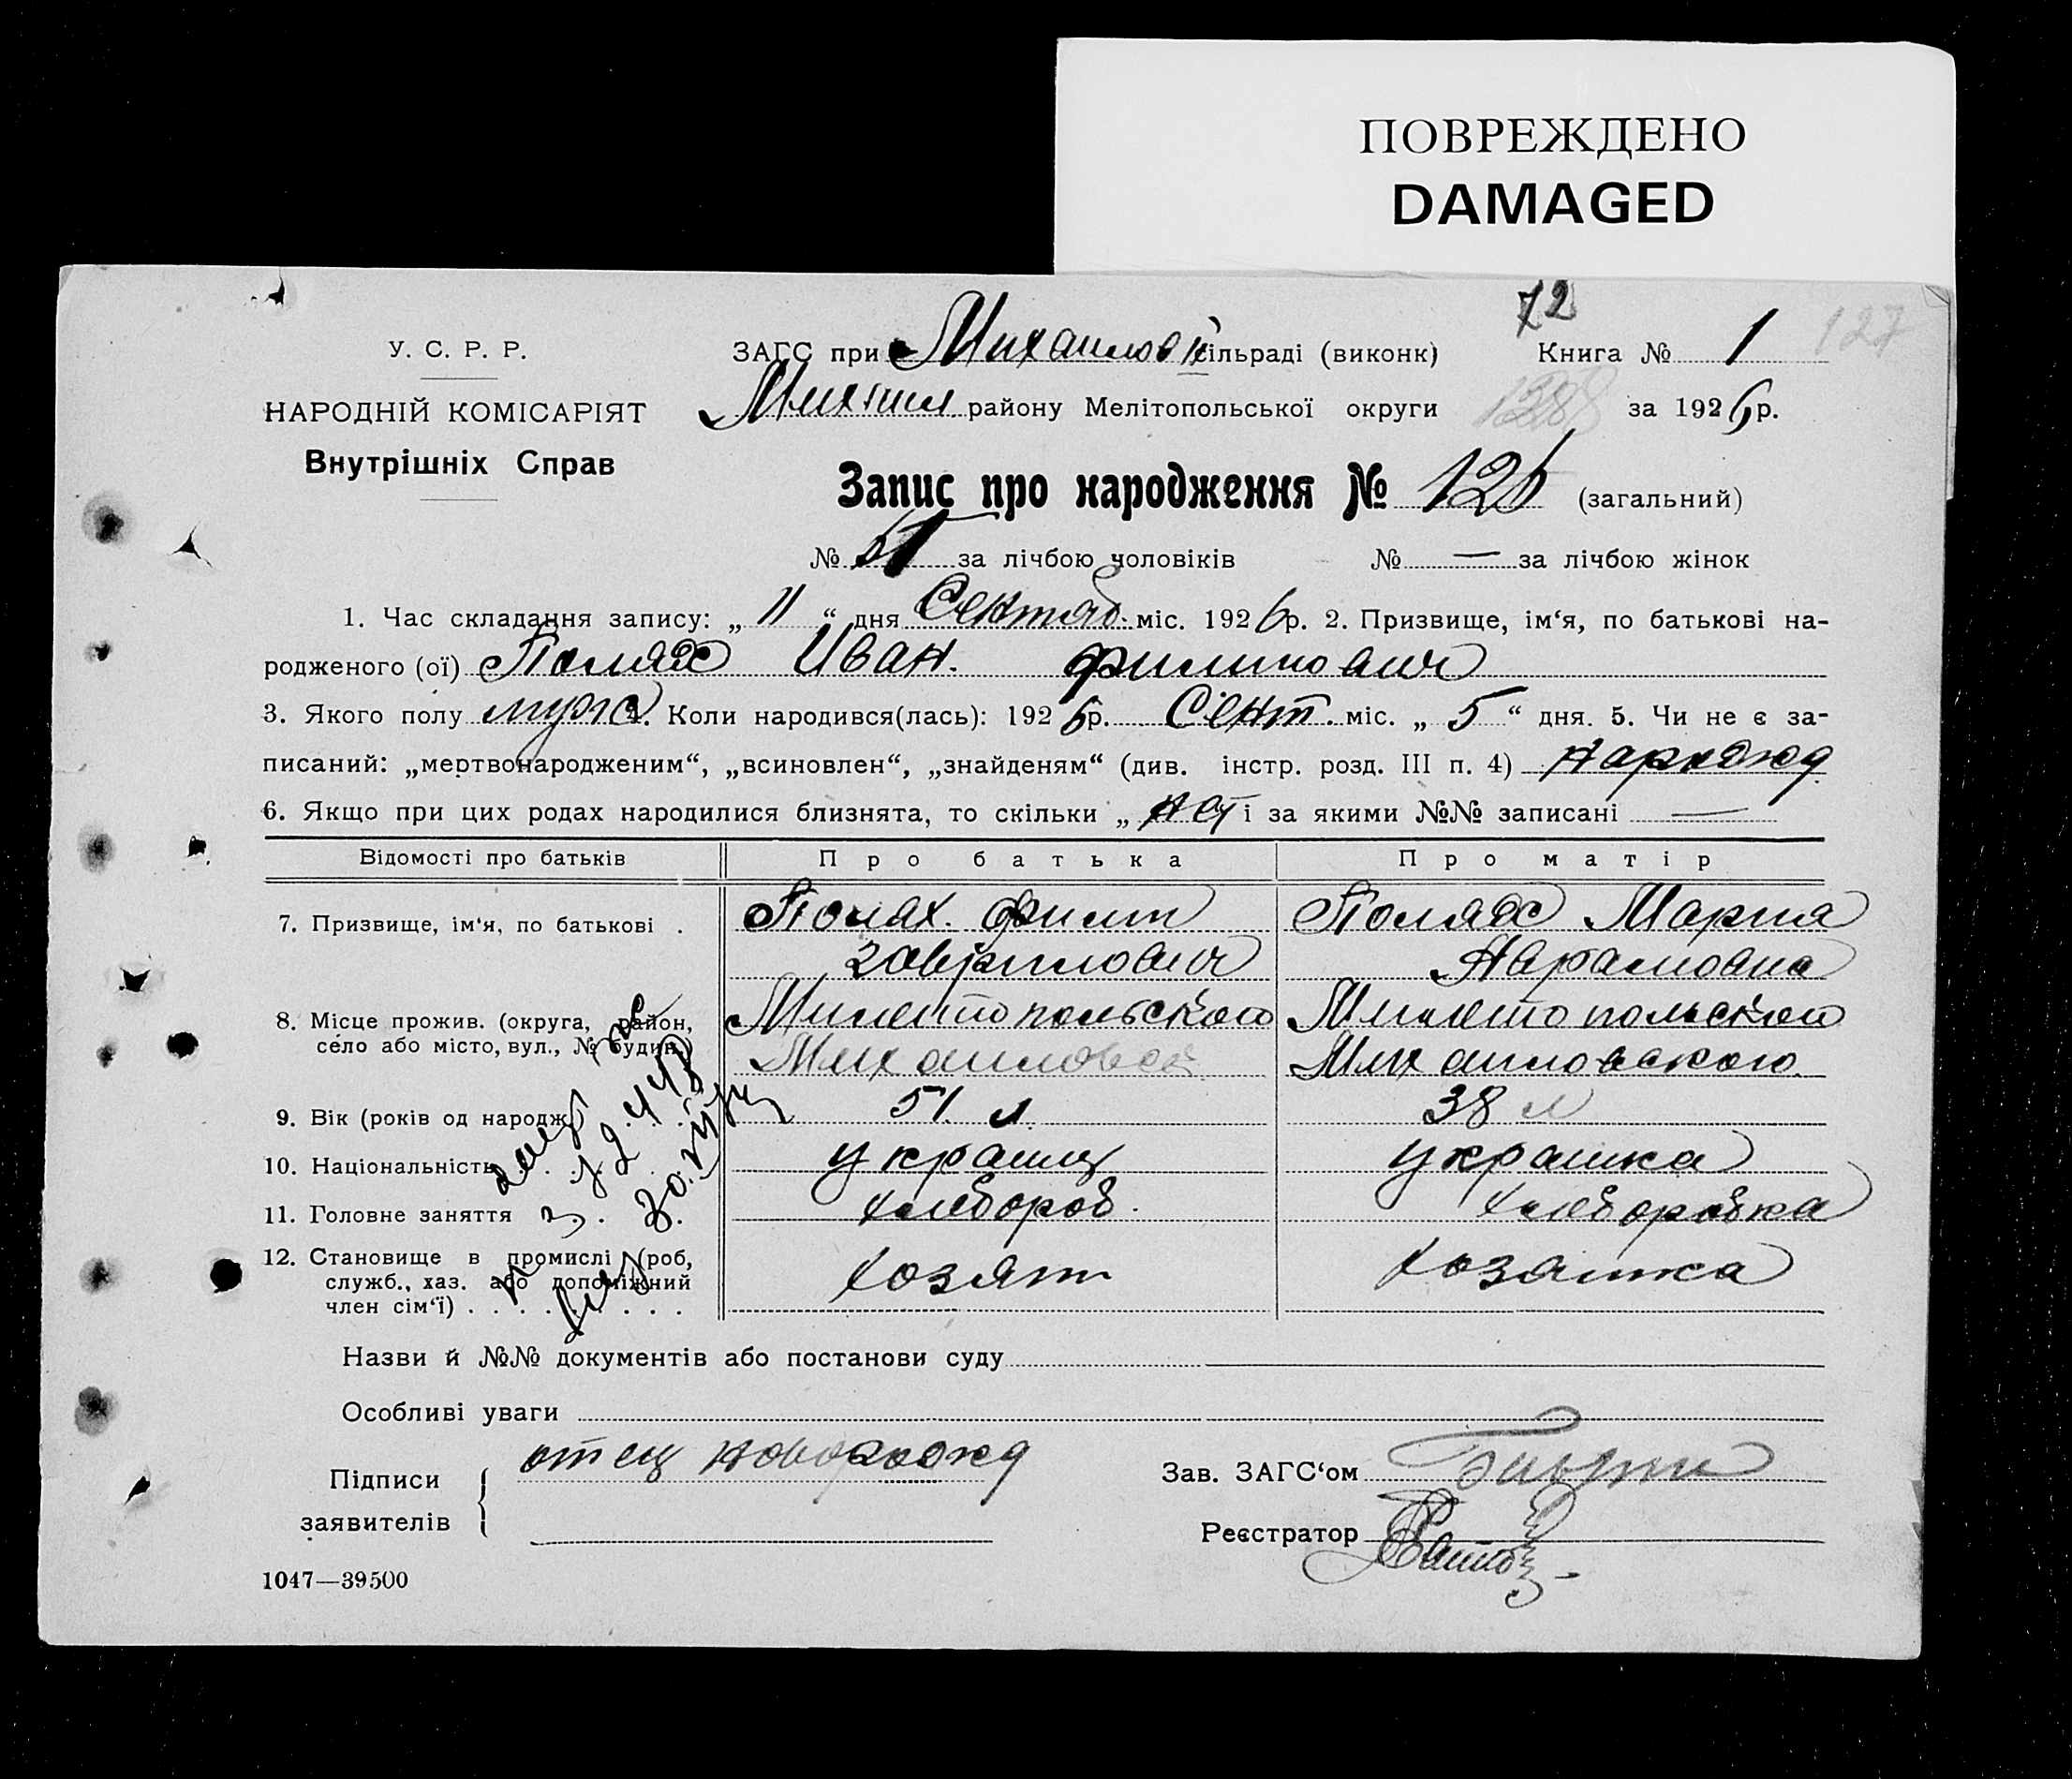 ПОВРЕЖДЕНО
DAMAGED
72
У. С. Р. Р.
ЗАГС при Михайловк сільраді (виконк)
Книга № 1 127
НАРОДНІЙ КОМІСАРІЯТ
Михайл району Мелітопольської округи
за 1926 р.
Внутрішніх Справ
Запис про народження № 126 (загальний)
№ за лічбою чоловіків № — за лічбою жінок
1. Час складання запису: „ 11 “ дня Сентяб. міс. 1926 р. 2. Призвище, ім‘я, по батькові на-
родженого (ої) Полях Иван. Филипович
3. Якого полу муж 4. Коли народився(лась): 1926 р. Сент. міс. „ 5 “ дня. 5. Чи не є за-
писаний: „мертвонародженим“, „всиновлен“, „знайденям“ (див. інстр. розд. III п. 4) Нарожд
6. Якщо при цих родах народилися близнята, то скільки „ нет і за якими №№ записані —
Відомості про батьків Про батька Про матір
7. Призвище, ім‘я, по батькові .
Полях. Филип
Гаврилович
Полях Мария
Аврамовна
8. Місце прожив. (округа, район,
село або місто, вул., № будин.)
Милитопольского
Михайловск
Милитопольского
Михайловского
9. Вік (років од народж.) 51. л. 38 л
10. Національність украинц украинка
11. Головне заняття хлебороб. хлеборобка
12. Становище в промислі (роб,
служб., хаз. або допоміжний
член сім‘ї)
хозяин
хозяйка
Назви й №№ документів або постанови суду
Особливі уваги
Підписи
заявителів
отец новорожд
Зав. ЗАГС‘ом
Реєстратор
1047—39500